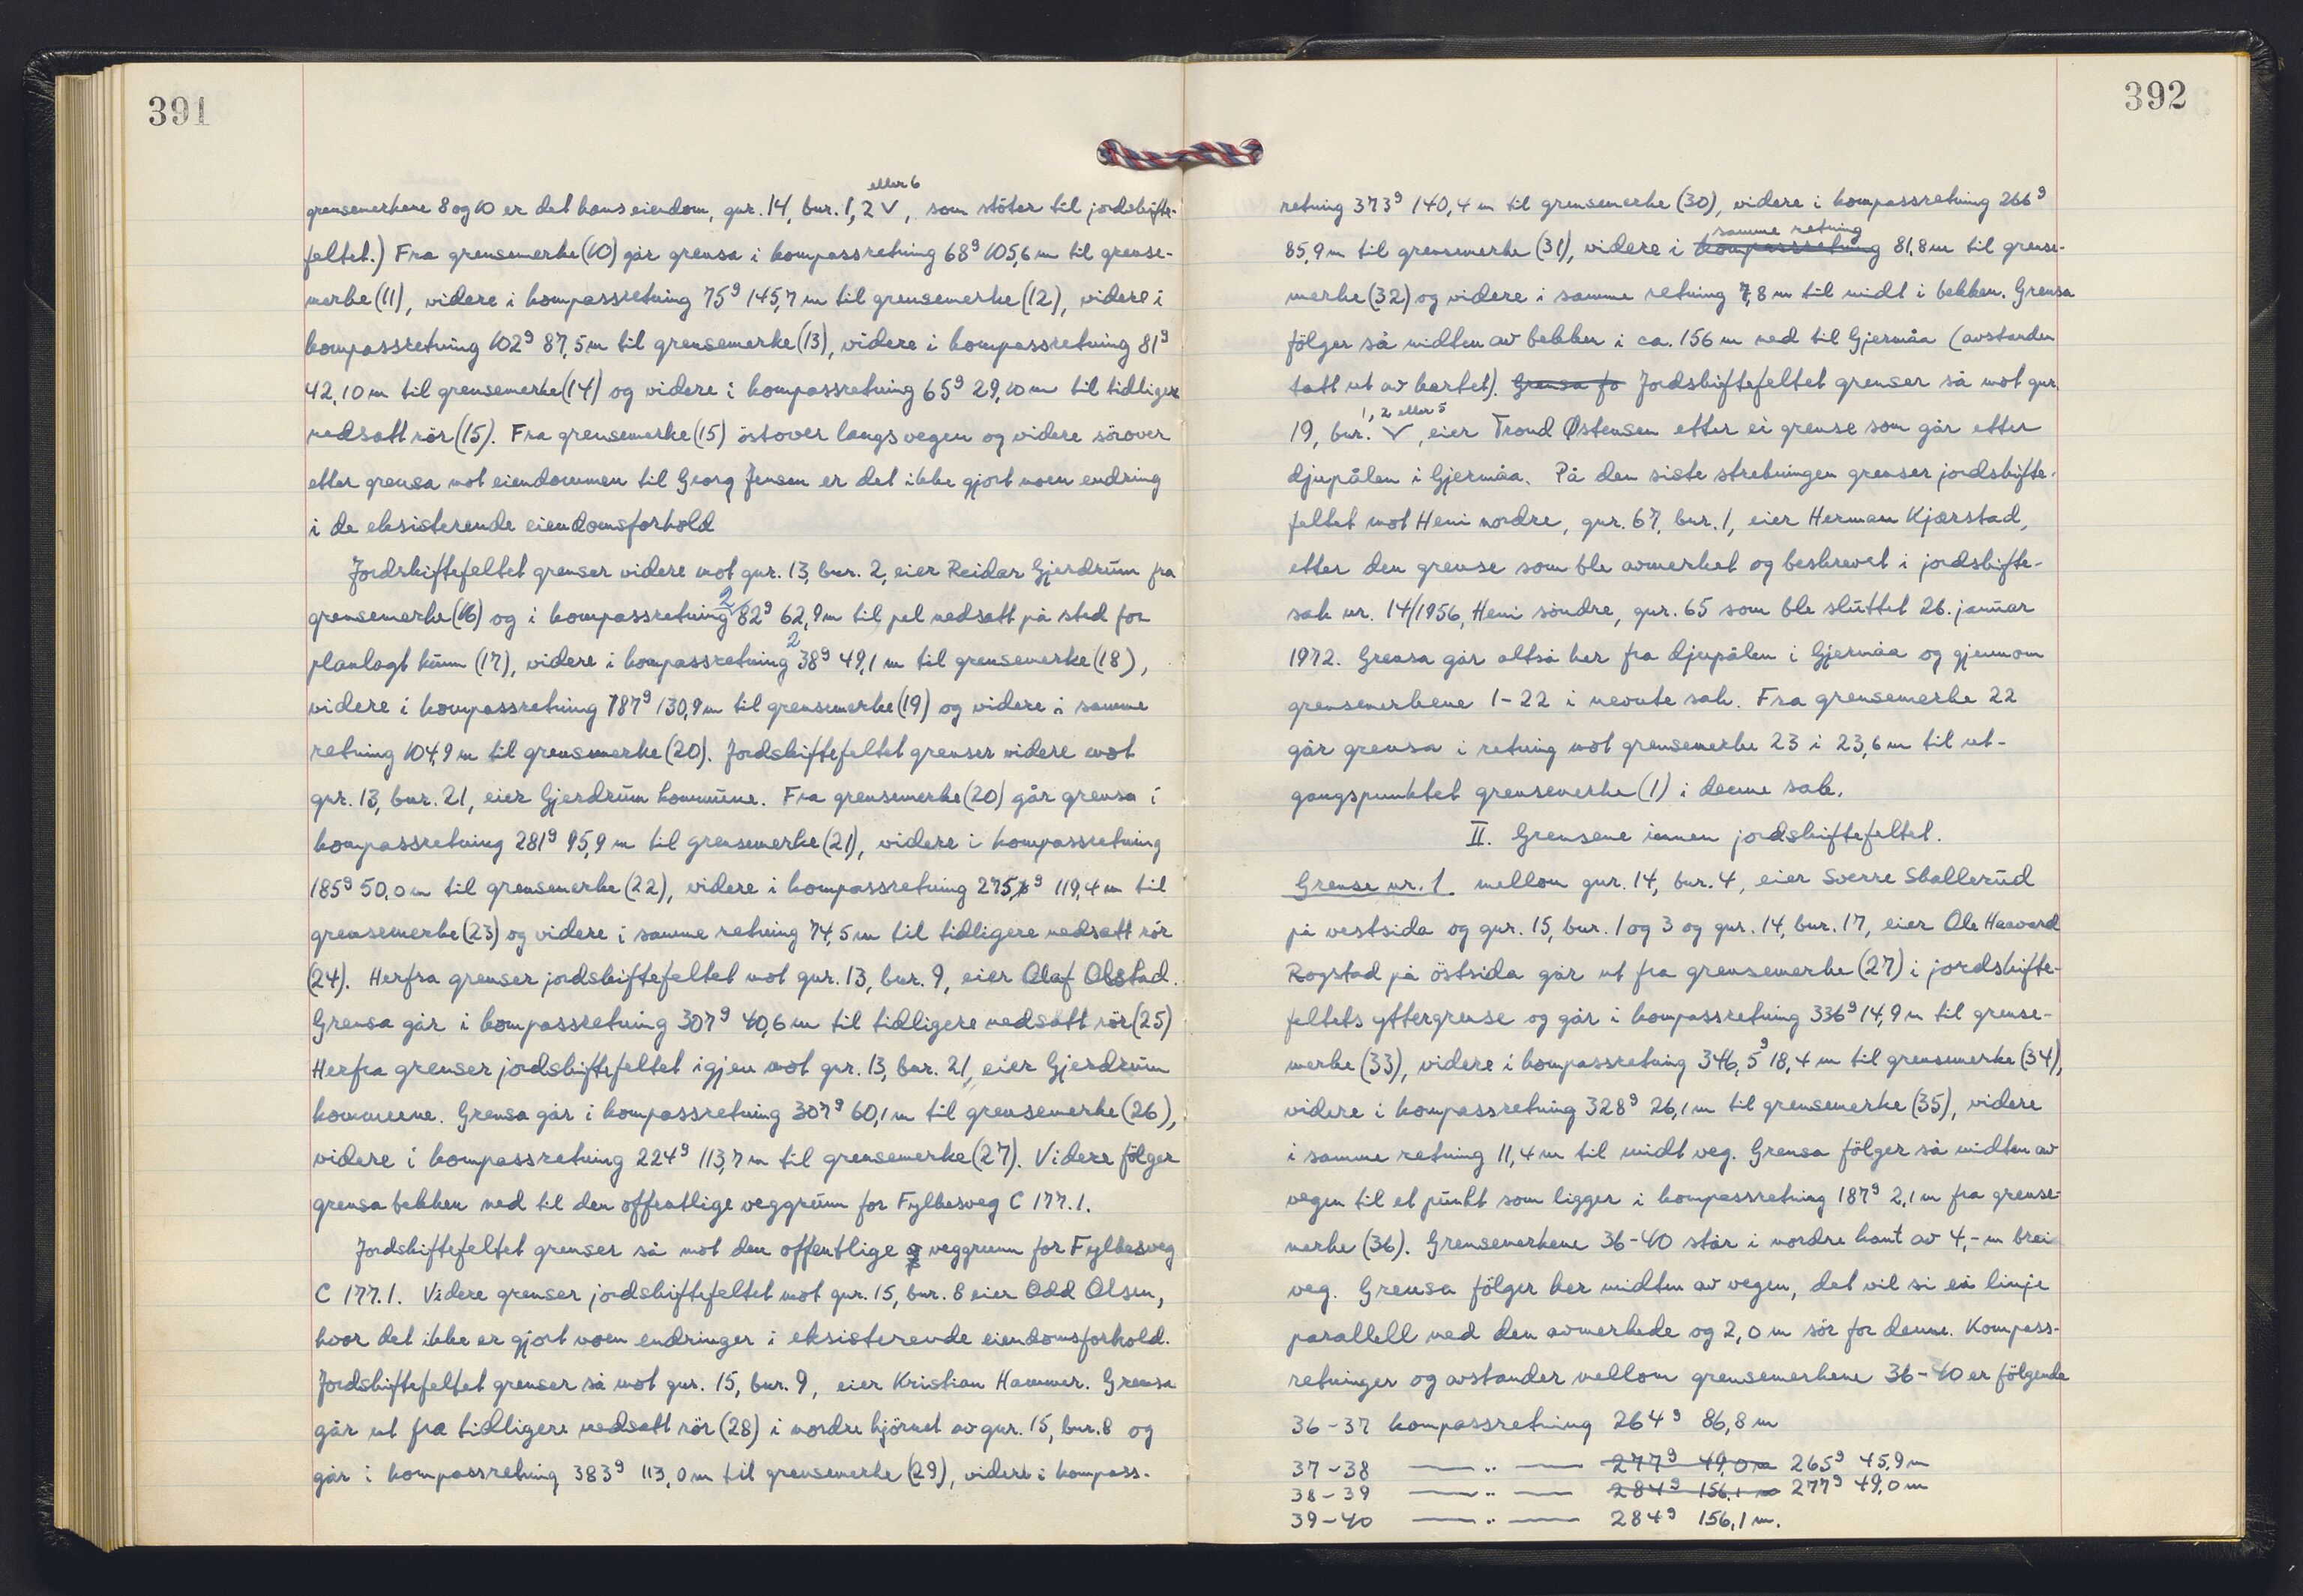 391
eller 6
grensemerkene 8 og 10 er det hans eiendom, gnr. 14, bnr. 1, 2 V, som støter til jordskifte-
feltet.) Fra grensemerke (10) går grensa i kompassretning 68g 105,6 m til grense-
merke (11), videre i kompassretning 75g 145,7 m til grensemerke (12), videre i
kompassretning 102g 87,5 m til grensemerke (13), videre i kompassretning 81g
42,10 m til grensemerke (14) og videre i kompassretning 65g 29,10 m til tidligere
nedsatt rör (15). Fra grensemerke (15) östover langs vegen og videre sörover
etter grensa mot eiendommen til Georg Jensen er det ikke gjort noen endring
i de eksisterende eiendomsforhold
Jordskiftefeltet grenser videre mot gnr. 13, bnr. 2, eier Reidar Gjerdrum fra
grensemerke (16) og i kompassretning 282g 62,9 m til pel nedsatt på sted for
planlagt kum (17), videre i kompassretning 238g 49,1 m til grensemerke (18),
videre i kompassretning 187g 130,9 m til grensemerke (19) og videre i samme
retning 104,9 m til grensemerke (20). Jordskiftefeltet grenser videre mot
gnr. 13, bnr. 21, eier Gjerdrum kommune. Fra grensemerke (20) går grensa i
kompassretning 281g 95,9 m til grensemerke (21), videre i kompassretning
185g 50,0 m til grensemerke (22), videre i kompassretning 275g 119,4 m til
grensemerke (23) og videre i samme retning 74,5 m til tidligere nedsatt rör
(24). Herfra grenser jordskiftefeltet mot gnr. 13, bnr. 9, eier Olaf Olstad.
Grensa går i kompassretning 307g 40,6 m til tidligere nedsatt rör (25)
Herfra grenser jordskiftefeltet igjen mot gnr. 13, bnr. 21, eier Gjerdrum
kommune. Grensa går i kompassretning 307g 60,1 m til grensemerke (26),
videre i kompassretning 224g 113,7 m til grensemerke (27). Videre fölger
grensa bekken ned til den offentlige veggrunn for Fylkesveg C 177.1.
Jordskiftefeltet grenser så mot den offentlige veggrunn for Fylkesveg
C 177.1. Videre grenser jordskiftefeltet mot gnr. 15, bnr. 8 eier Odd Olsen,
hvor det ikke er gjort noen endringer i eksisterende eiendomsforhold.
Jordskiftefeltet grenser så mot gnr. 15, bnr. 9, eier Kristian Hammer. Grensa
går ut fra tidligere nedsatt rör (28) i nordre hjörnet av gnr. 15, bnr. 8 og
går i kompassretning 383g 113,0 m til grensemerke (29), videre i kompass-
392
retning 373g 140,4 m til grensemerke (30), videre i kompassretning 266g
samme retning
85,9 m til grensemerke (31), videre i kompassretning 81,8 m til grense-
merke (32) og videre i samme retning 7,8 m til midt i bekken. Grensa
fölger så midten av bekken i ca. 156 m ned til Gjermåa (avstanden
tatt ut av kartet). Grensa fo Jordskiftefeltet grenser så mot gnr.
1, 2 eller 5
19, bnr. V, eier Trond Østensen etter ei grense som går etter
djupålen i Gjermåa. På den siste strekningen grenser jordskifte-
feltet mot Heni nordre, gnr. 67, bnr. 1, eier Herman Kjærstad,
etter den grense som ble avmerket og beskrevet i jordskifte-
sak nr. 14/1956, Heni söndre, gnr. 65 som ble sluttet 26. januar
1972. Grensa går altså her fra djupålen i Gjermåa og gjennom
grensemerkene 1-22 i nevnte sak. Fra grensemerke 22
går grensa i retning mot grensemerke 23 i 23,6 m til ut-
gangspunktet grensemerke (1) i denne sak.
II. Grensene innen jordskiftefeltet.
Grense nr. 1 mellom gnr. 14, bnr. 4, eier Sverre Skallerud
på vestsida og gnr. 15, bnr. 1 og 3 og gnr. 14, bnr. 17, eier Ole Haavard
Rogstad på östsida går ut fra grensemerke (27) i jordskifte-
feltets yttergrense og går i kompassretning 336g 14,9 m til grense-
merke (33), videre i kompassretning 346,5g 18,4 m til grensemerke (34),
videre i kompassretning 328g 26,1 m til grensemerke (35), videre
i samme retning 11,4 m til midt veg. Grensa fölger så midten av
vegen til et punkt som ligger i kompassretning 187g 2,1 m fra grense-
merke (36). Grensemerkene 36-40 står i nordre kant av 4,- m brei
veg. Grensa fölger her midten av vegen, det vil si ei linje
parallell med den avmerkede og 2,0 m sör for denne. Kompass-
retninger og avstander mellom grensemerkene 36-40 er fölgende
36-37 kompassretning 264g 86,8 m
37-38 —..— 277g 49,0 m 265g 45,9 m
38-39 —..— 284g 156,1 m 277g 49,0 m
39-40 —..— 284g 156,1 m.